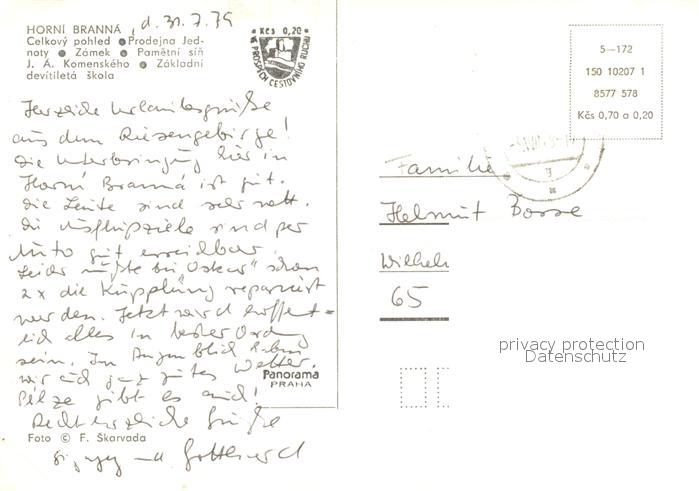 HORNÍ BRANNÁ , d. 31.7.79
Celkový pohled ● Prodejna Jed-
noty ● Zámek ● Pamětní síň
J. Á. Komenského ● Základní
devítiletá škola
★ Kčs 0,20 ★
VE PROSPĚCH CESTOVNÍHO RUCHU
5–172
150 10207 1
8577 578
Kčs 0,70 a 0,20
Herzliche Urlaubsgrüße
aus dem Riesengebirge!
Die Unterbringung hier in
Horní Branná ist gut.
Die Leute sind sehr nett.
Die Ausflugsziele sind per
Auto gut erreichbar.
Leider mußte bei "Oskar" schon
2 x die Kupplung repariert
werden. Jetzt wird hoffent=
lich alles in bester Ordnung
sein. Im Augenblick haben
wir auch gutes Wetter.
Pilze gibt es auch!
Recht herzliche Grüße
und
Familie
Helmut Borse
Wilhelm
65
Panorama
PRAHA
Foto © F. Škarvada
privacy protection
Datenschutz